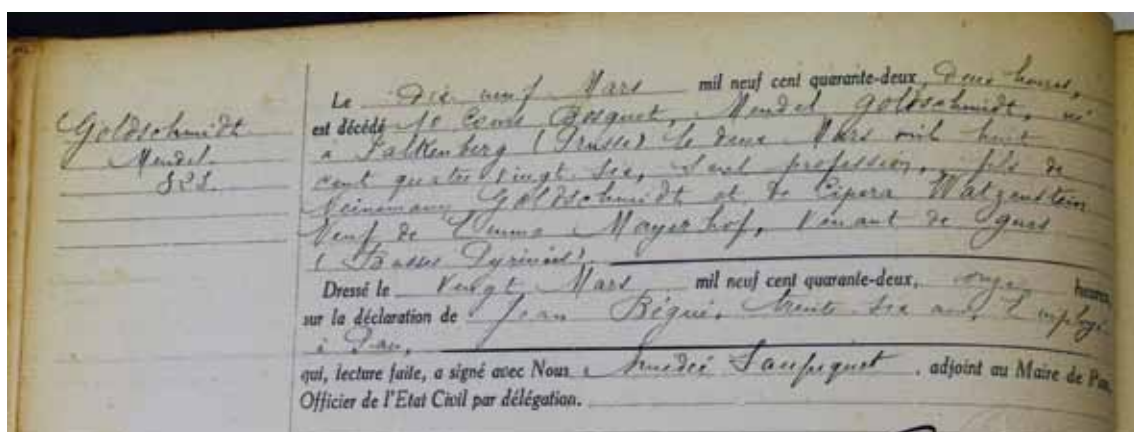 Goldschmidt
Mendel
Le Dix neuf Mars mil neuf cent quarante-deux, Deux heures,
est décédé 10 Cours Bosquet, Mendel Goldschmidt, né
à Falkenberg (Prusse) le deux Mars mil huit
cent quatre vingt six, sans profession, fils de
Heinemann Goldschmidt et de Cipora Watzenstein
Veuf de Emma Mayerhof, Venant de Gurs
(Basses Pyrénées).
Dressé le Vingt Mars mil neuf cent quarante-deux, onze heures,
sur la déclaration de Jean Bégué, trente six ans, Employé
à Pau,
qui, lecture faite, a signé avec Nous Amédée Saupiquet, adjoint au Maire de Pau,
Officier de l'Etat Civil par délégation.